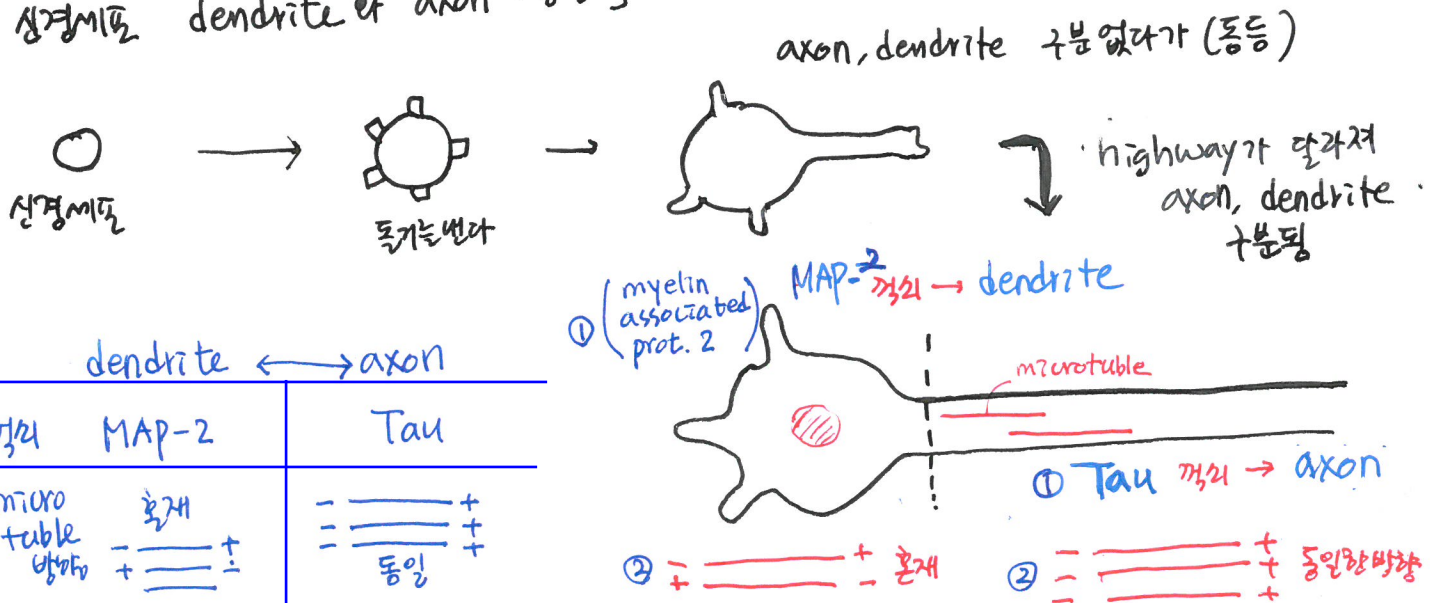 신경세포 dendrite와 axon
axon, dendrite 구분 없다가 (동등)
신경세포
돌기를 낸다
highway가 달라져
axon, dendrite
구분됨
① (myelin
associated
prot. 2)
MAP-2 꺽쇠 → dendrite
microtuble
① Tau 꺽쇠 → axon
② - +
+ - 혼재
② - +
- + 동일한 방향
- +
dendrite ↔ axon
꺽쇠 MAP-2 Tau
micro
tuble
방향
혼재
- +
+ -
- +
- +
- +
동일